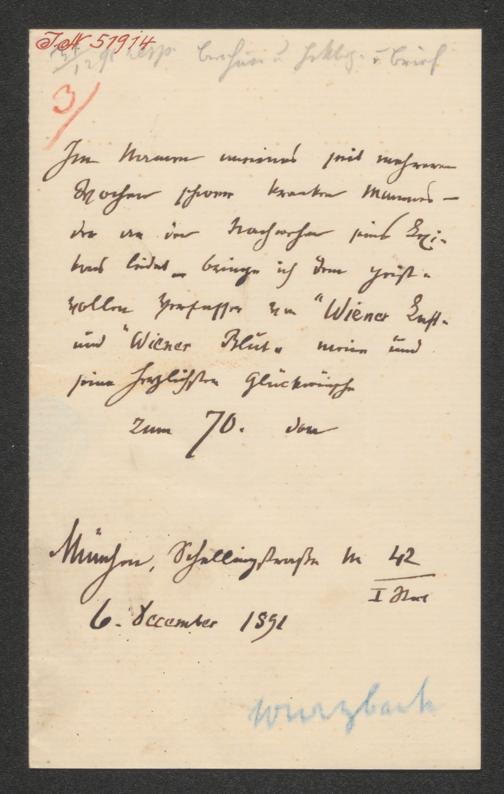 J.N 51914
3/
Im Namen meines seit mehreren
Wochen schwer kranken Mannes –
der an den Nachwehen seines
leidet – bringe ich dem geist-
vollen Verfasser von "Wiener Luft"
und "Wiener Blut" meine und
seine herzlichsten Glückwünsche
zum 70. dar
München, Schellingstraße N 42
I
6. December 1891
Wurzbach